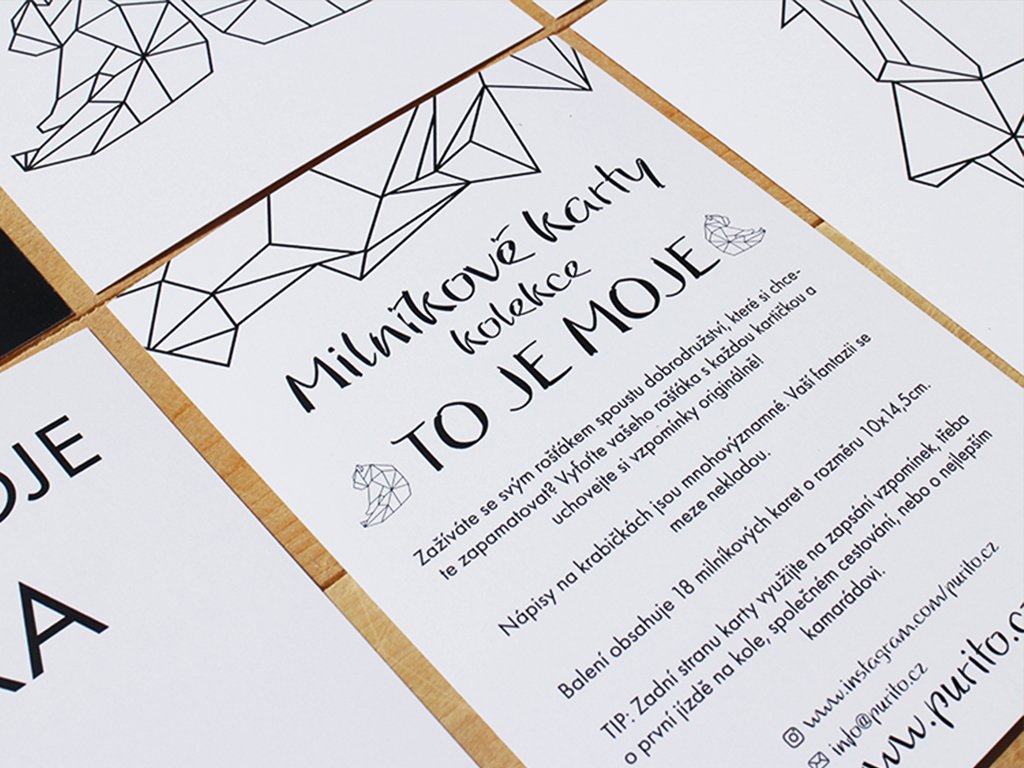 Milníkové karty
kolekce
TO JE MOJE
Zažíváte se svým rošťákem spoustu dobrodružství, které si chce-
te zapamatovat? Vyfoťte vašeho rošťáka s každou kartičkou a
uchovejte si vzpomínky originálně!
Nápisy na krabičkách jsou mnohovýznamné. Vaší fantazii se
meze nekladou.
Balení obsahuje 18 milníkových karet o rozměru 10x14,5cm.
TIP: Zadní stranu karty využijte na zapsání vzpomínek, třeba
o první jízdě na kole, společném cestování, nebo o nejlepším
kamarádovi.
www.instagram.com/purito.cz
info@purito.cz
www.purito.cz
OJE
KA